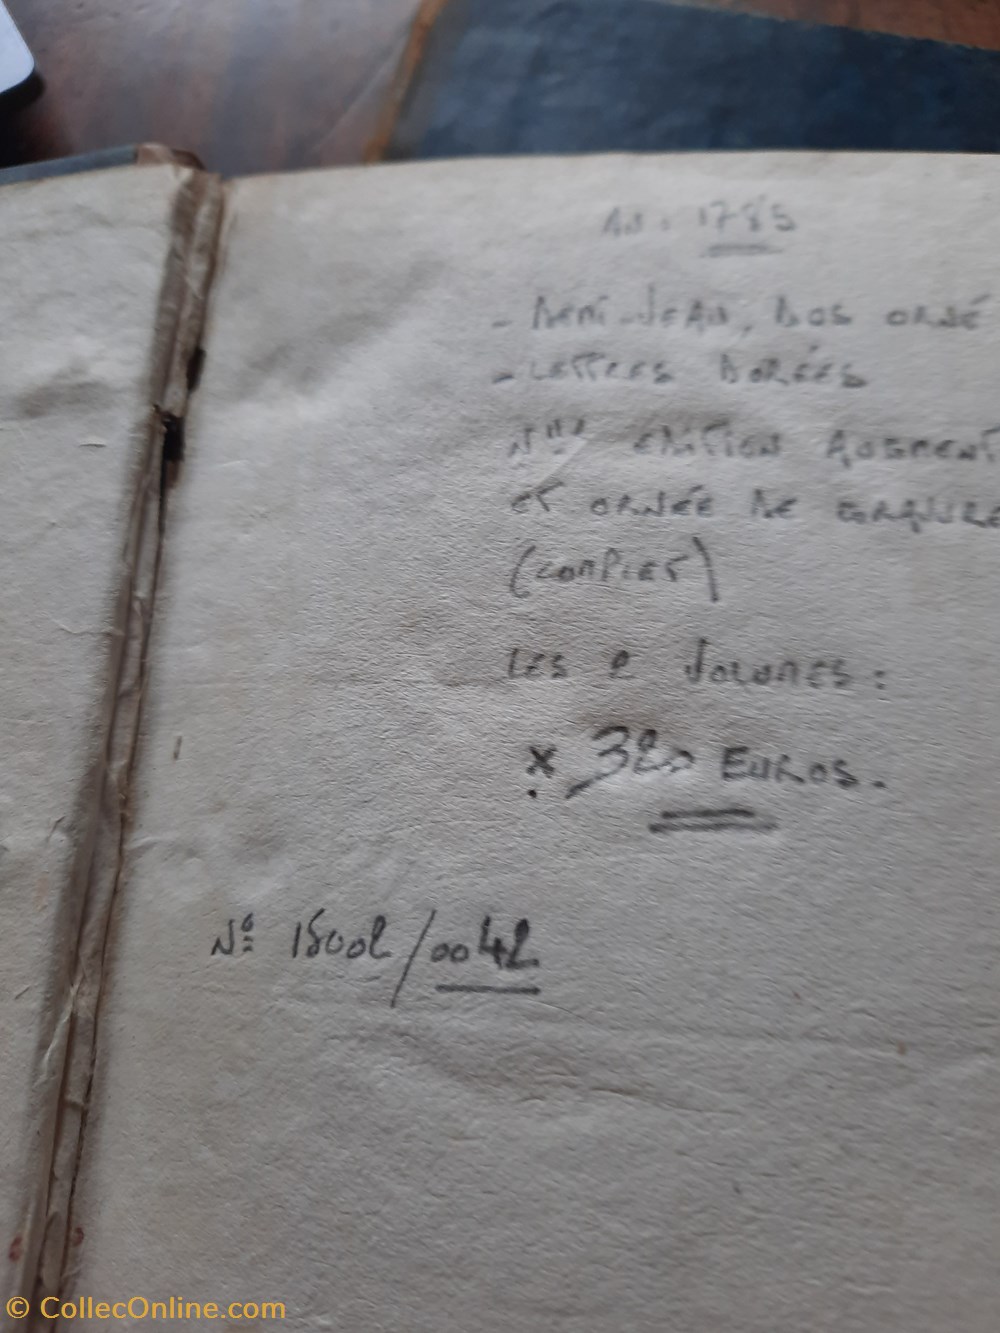 AN : 1785
- DEMI-VEAU, DOS ORNÉ
- LETTRES DORÉES
Nlle EDITION AUGMENT
ET ORNÉE DE GRAVURE
(COMPLET)
LES 2 VOLUMES :
x 320 EUROS.
N° 15002/0042
© CollecOnline.com